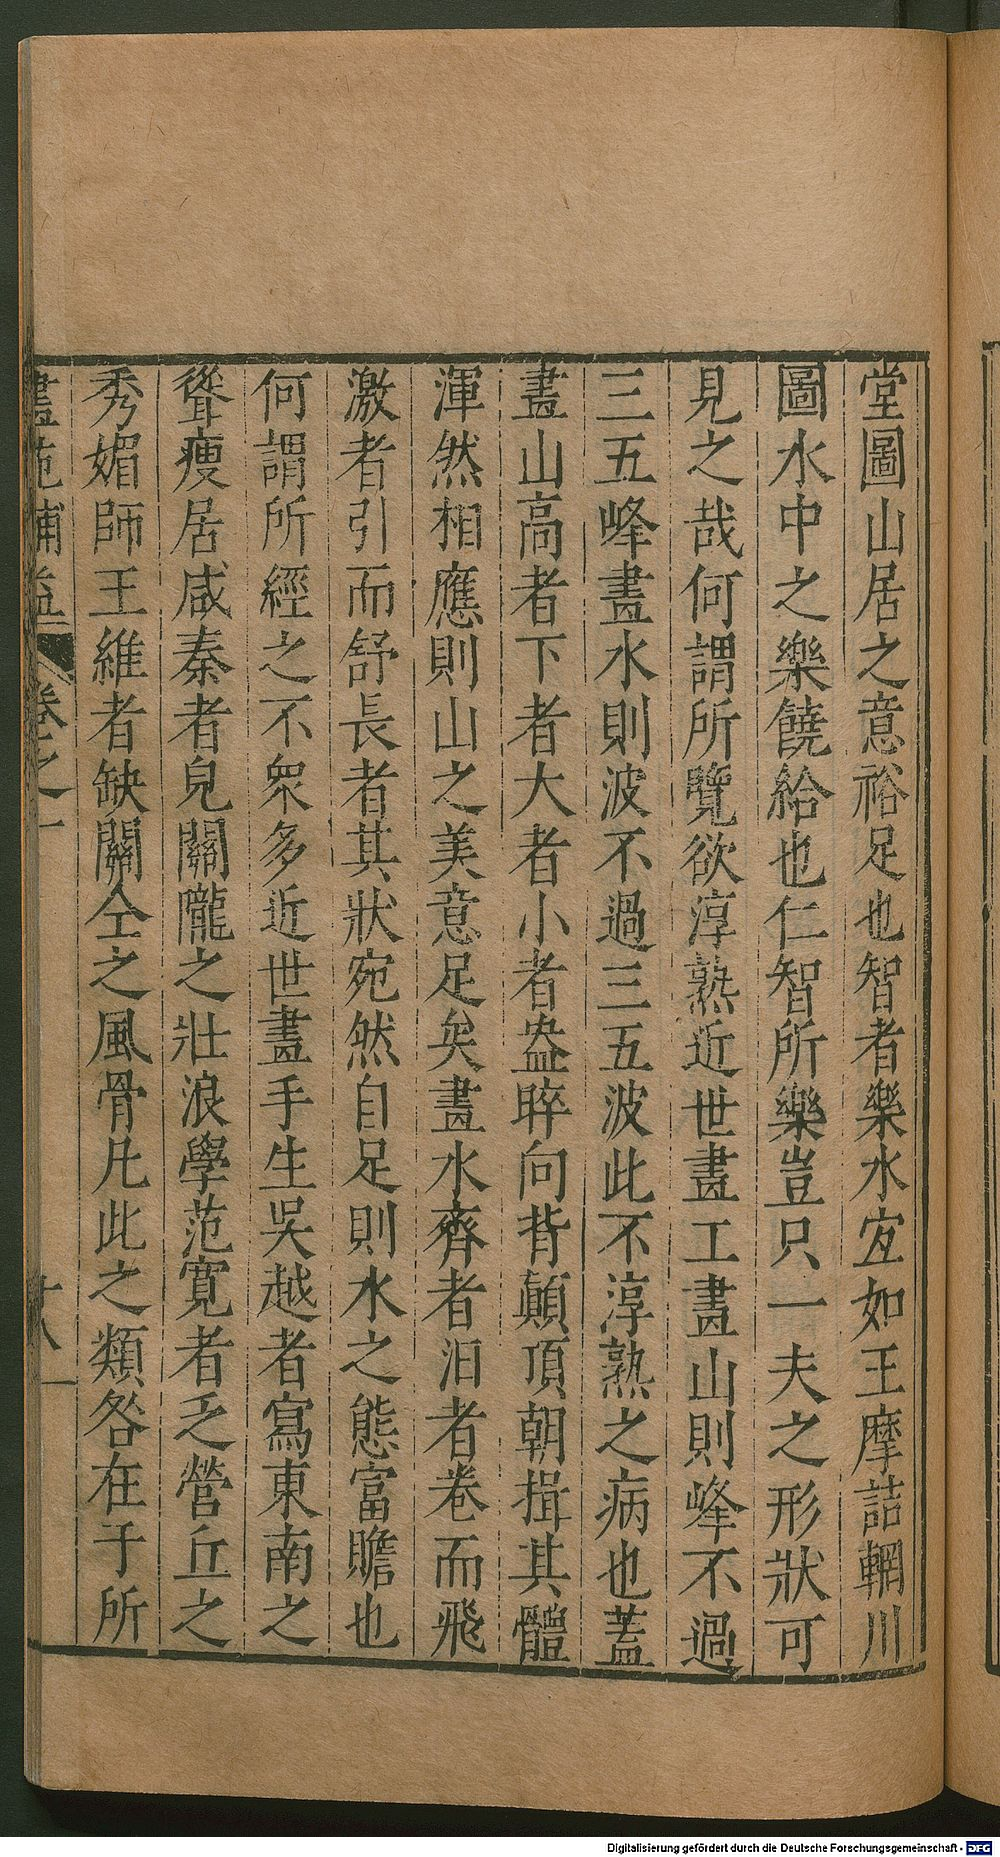 堂圖山居之意裕足也智者樂水宜如王摩詰輞川
圖水中之樂饒給也仁智所樂豈只一夫之形狀可
見之哉何謂所覽欲淳熟近世畫工畫山則峰不過
三五峰畫水則波不過三五波此不淳熟之病也蓋
畫山高者下者大者小者盎睟向背顛頂朝揖其體
渾然相應則山之美意足矣畫水齊者汩者卷而飛
激者引而舒長者其狀宛然自足則水之態富贍也
何謂所經之不衆多近世畫手生吳越者寫東南之
聳瘦居咸秦者皃關隴之壯浪學范寬者乏營丘之
秀媚師王維者缺關仝之風骨凡此之類咎在于所
畫苑補益 卷之一 十八
Digitalisierung gefördert durch die Deutsche Forschungsgemeinschaft - DFG